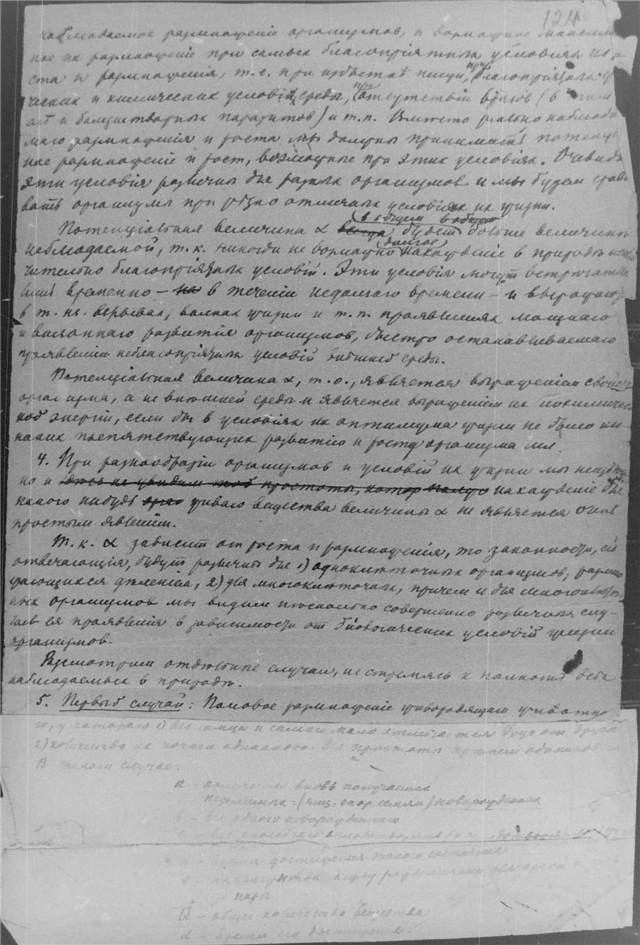 121
наблюдаемое размножение организмов, а нормальное максималь
ное их размножение при самых благоприятных условиях их ро
ста и размножения, т.е. при избытке пищи, при благоприятных
ческих и химических условий среды, при отсутствии врагов (в том
и болезнетворных паразитов) и т.п. Вместо реально наблюдае
мого размножения и роста мы должны принимать потенциаль
ное размножение и рост, возможные при этих условиях. Очевидно
эти условия различны для разных организмов и мы будем срав
вать организмы при резко отличных условиях их жизни.
Потенциальная величина α всегда в общем будет больше величины
наблюдаемой, т.к. никогда не нормально долгое нахождение в природе
чительно благоприятных условий. Эти условия могут встречаться
лишь временно – на в течении недолгого времени – и выражаются
в т. наз. взрывах, волнах жизни и т.п. проявлениях мощного
и внезапного развития организмов, быстро останавливаемого
проявлением неблагоприятных условий внешней среды.
Потенциальная величина α, т.о., является выражением свойств
организма, а не внешней среды и является выражением их
ной энергии, если бы в условиях их оптимума жизни не было ни
каких препятствующих развитию и росту организма
4. При разнообразии организмов и условий их жизни мы
но и здесь не увидим той простоты, нахождение для
какого нибудь орга живого вещества величины α не является очень
простым явлением.
Т.к. α зависит от роста и размножения, то законности, ей
отвечающие, будут различны для 1) одноклеточных организмов, размно
жающихся делением, 2) для многоклеточных, причем и для многоклеточ
ных организмов мы видим несколько совершенно различных слу
чаев ея проявления в зависимости от биологических условий жизни
организмов.
Рассмотрим отдельные случаи, не стремясь к полноте всех
наблюдаемых в природе.
5. Первый случай: Половое размножение живородящего животно
го, у которого 1) вес самца и самки мало отличается друг от друга
2) количество их почти одинаково. Для простоты примем одинаковое
В таком случае:
a – количество вновь получаемых
(яиц, спор, семян) новорожденных
b – вес одного новорожденного
d – время достижения такого состояния
e – промежуток между
пары
Q – общее количество вещества
α – время его достижения